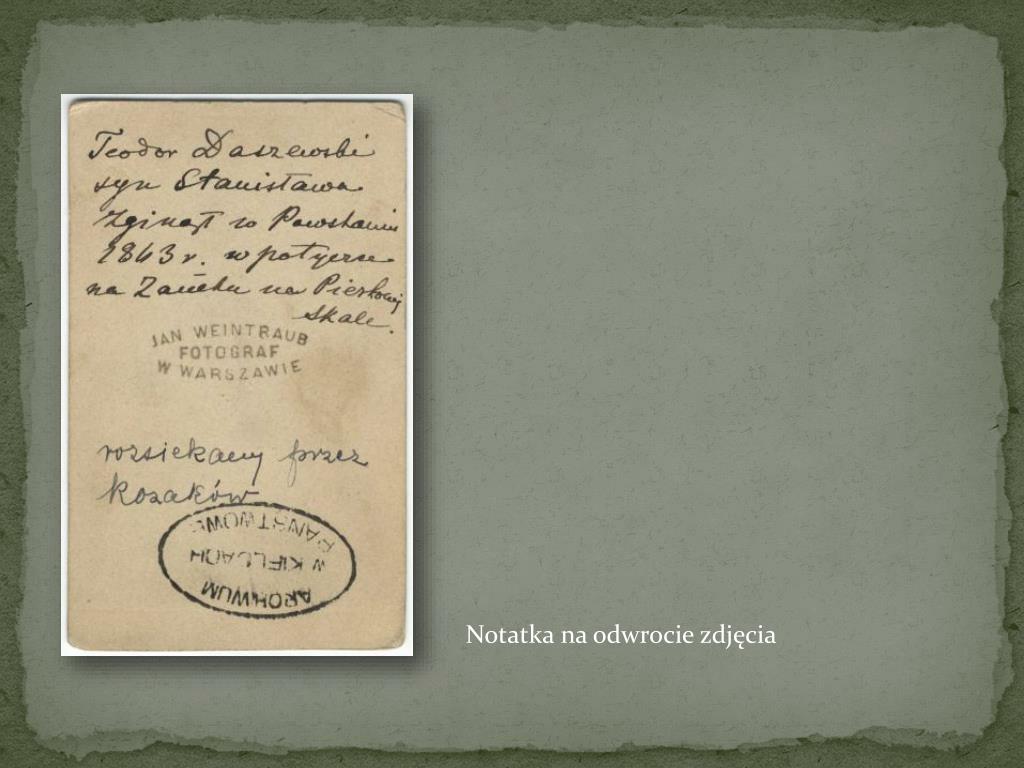 Teodor Daszewski
syn Stanisława
Zginął w Powstaniu
1863 r. w potyczce
na Zamku na Pieskowej
Skale.
JAN WEINTRAUB
FOTOGRAF
W WARSZAWIE
rozsiekany przez
Kozaków
ARCHIWUM
PAŃSTWOWE
W KIELCACH
Notatka na odwrocie zdjęcia